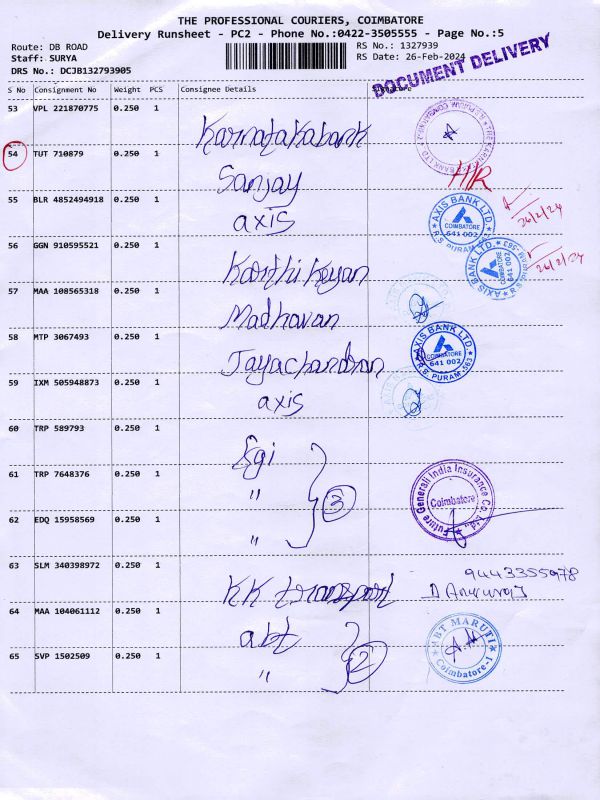 THE PROFESSIONAL COURIERS, COIMBATORE
Delivery Runsheet - PC2 - Phone No.:0422-3505555 - Page No.:5
Route: DB ROAD
Staff: SURYA
DRS No.: DCJB132793905
RS No.: 1327939
RS Date: 26-Feb-2024
DOCUMENT DELIVERY
S No Consignment No Weight PCS Consignee Details Signature
53 VPL 221870775 0.250 1 Karnatakabank
54 TUT 710879 0.250 1 Sanjay
HR
55 BLR 4852494918 0.250 1 axis
AXIS BANK LTD. COIMBATORE 641 002 R.S. PURAM
26/2/24
56 GGN 910595521 0.250 1 Karthikeyan
AXIS BANK LTD. COIMBATORE 641 002
26/2/24
57 MAA 108565318 0.250 1 Madhavan
58 MTP 3067493 0.250 1 Jayachandran
AXIS BANK LTD. COIMBATORE 641 002 R.S. PURAM-563
59 IXM 505948873 0.250 1 axis
60 TRP 589793 0.250 1 Fgi
61 TRP 7648376 0.250 1 "
3
Future Generali India Insurance Co. Ltd., Coimbatore
62 EDQ 15958569 0.250 1 "
63 SLM 340398972 0.250 1 KK transport
9443355978
64 MAA 104061112 0.250 1 abt
2
ABT MARUTI Coimbatore-1
65 SVP 1502509 0.250 1 "